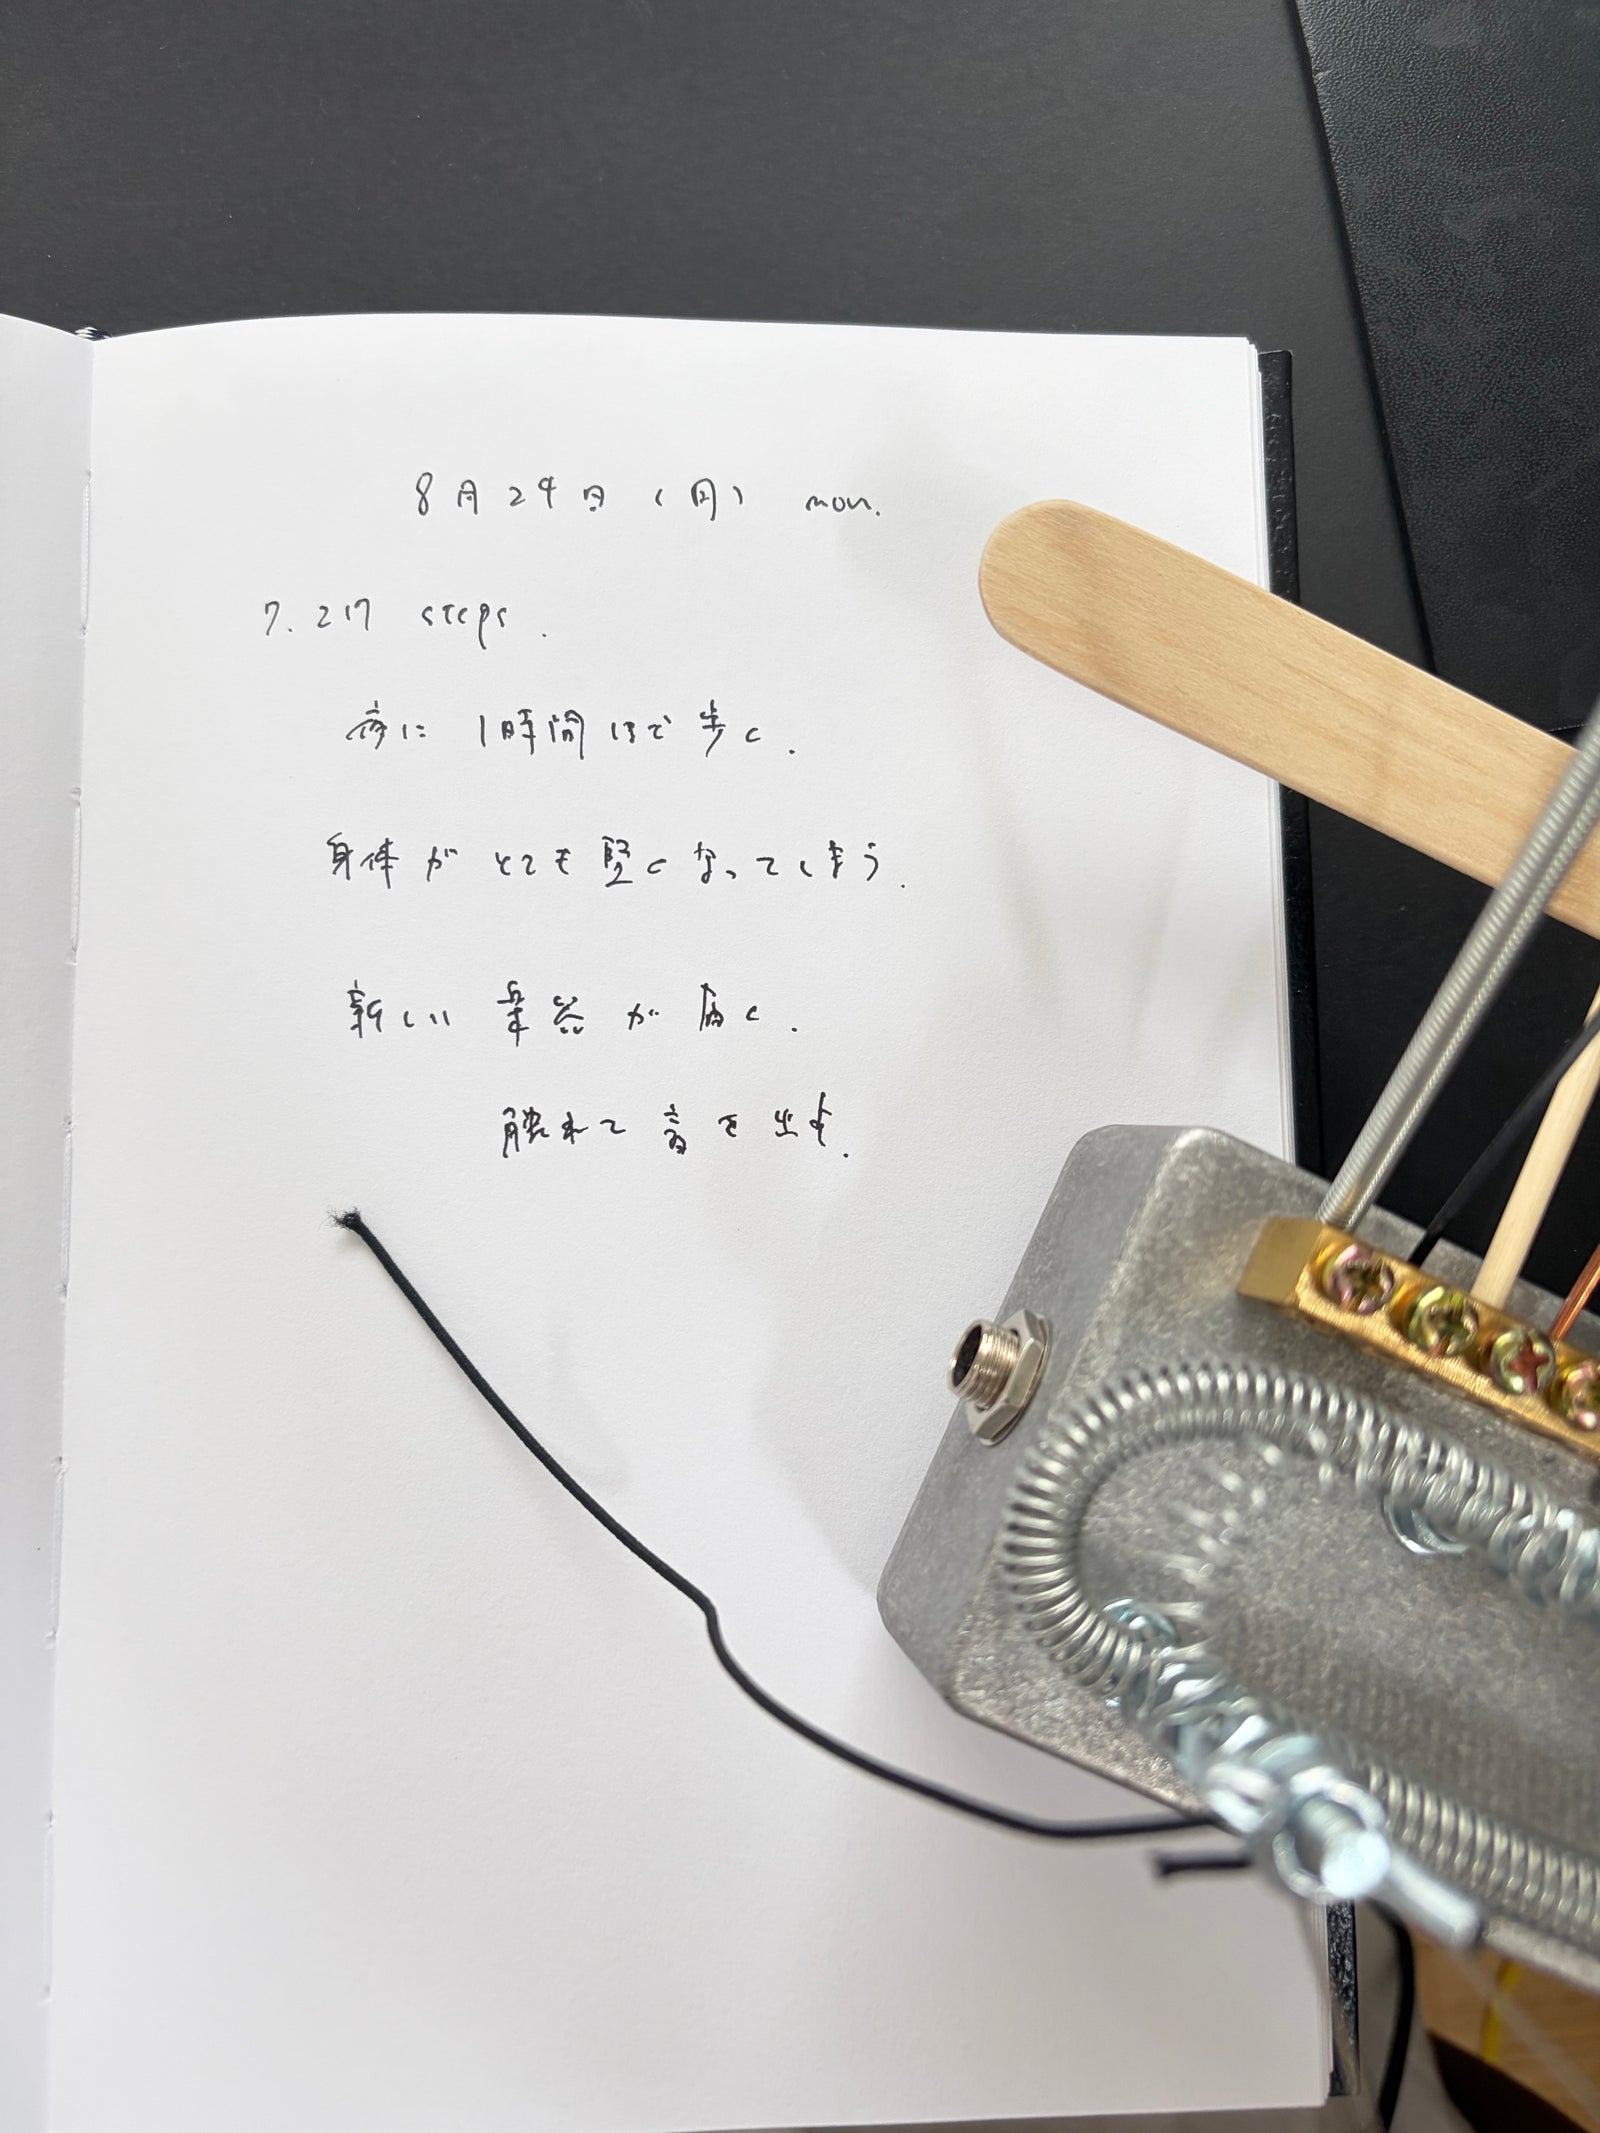 8月24日（月） mon.
7.217 steps.
夜に 1時間ほど歩く.
身体が とても 堅くなってしまう.
新しい 楽器が 届く.
触れて 音を 出す.